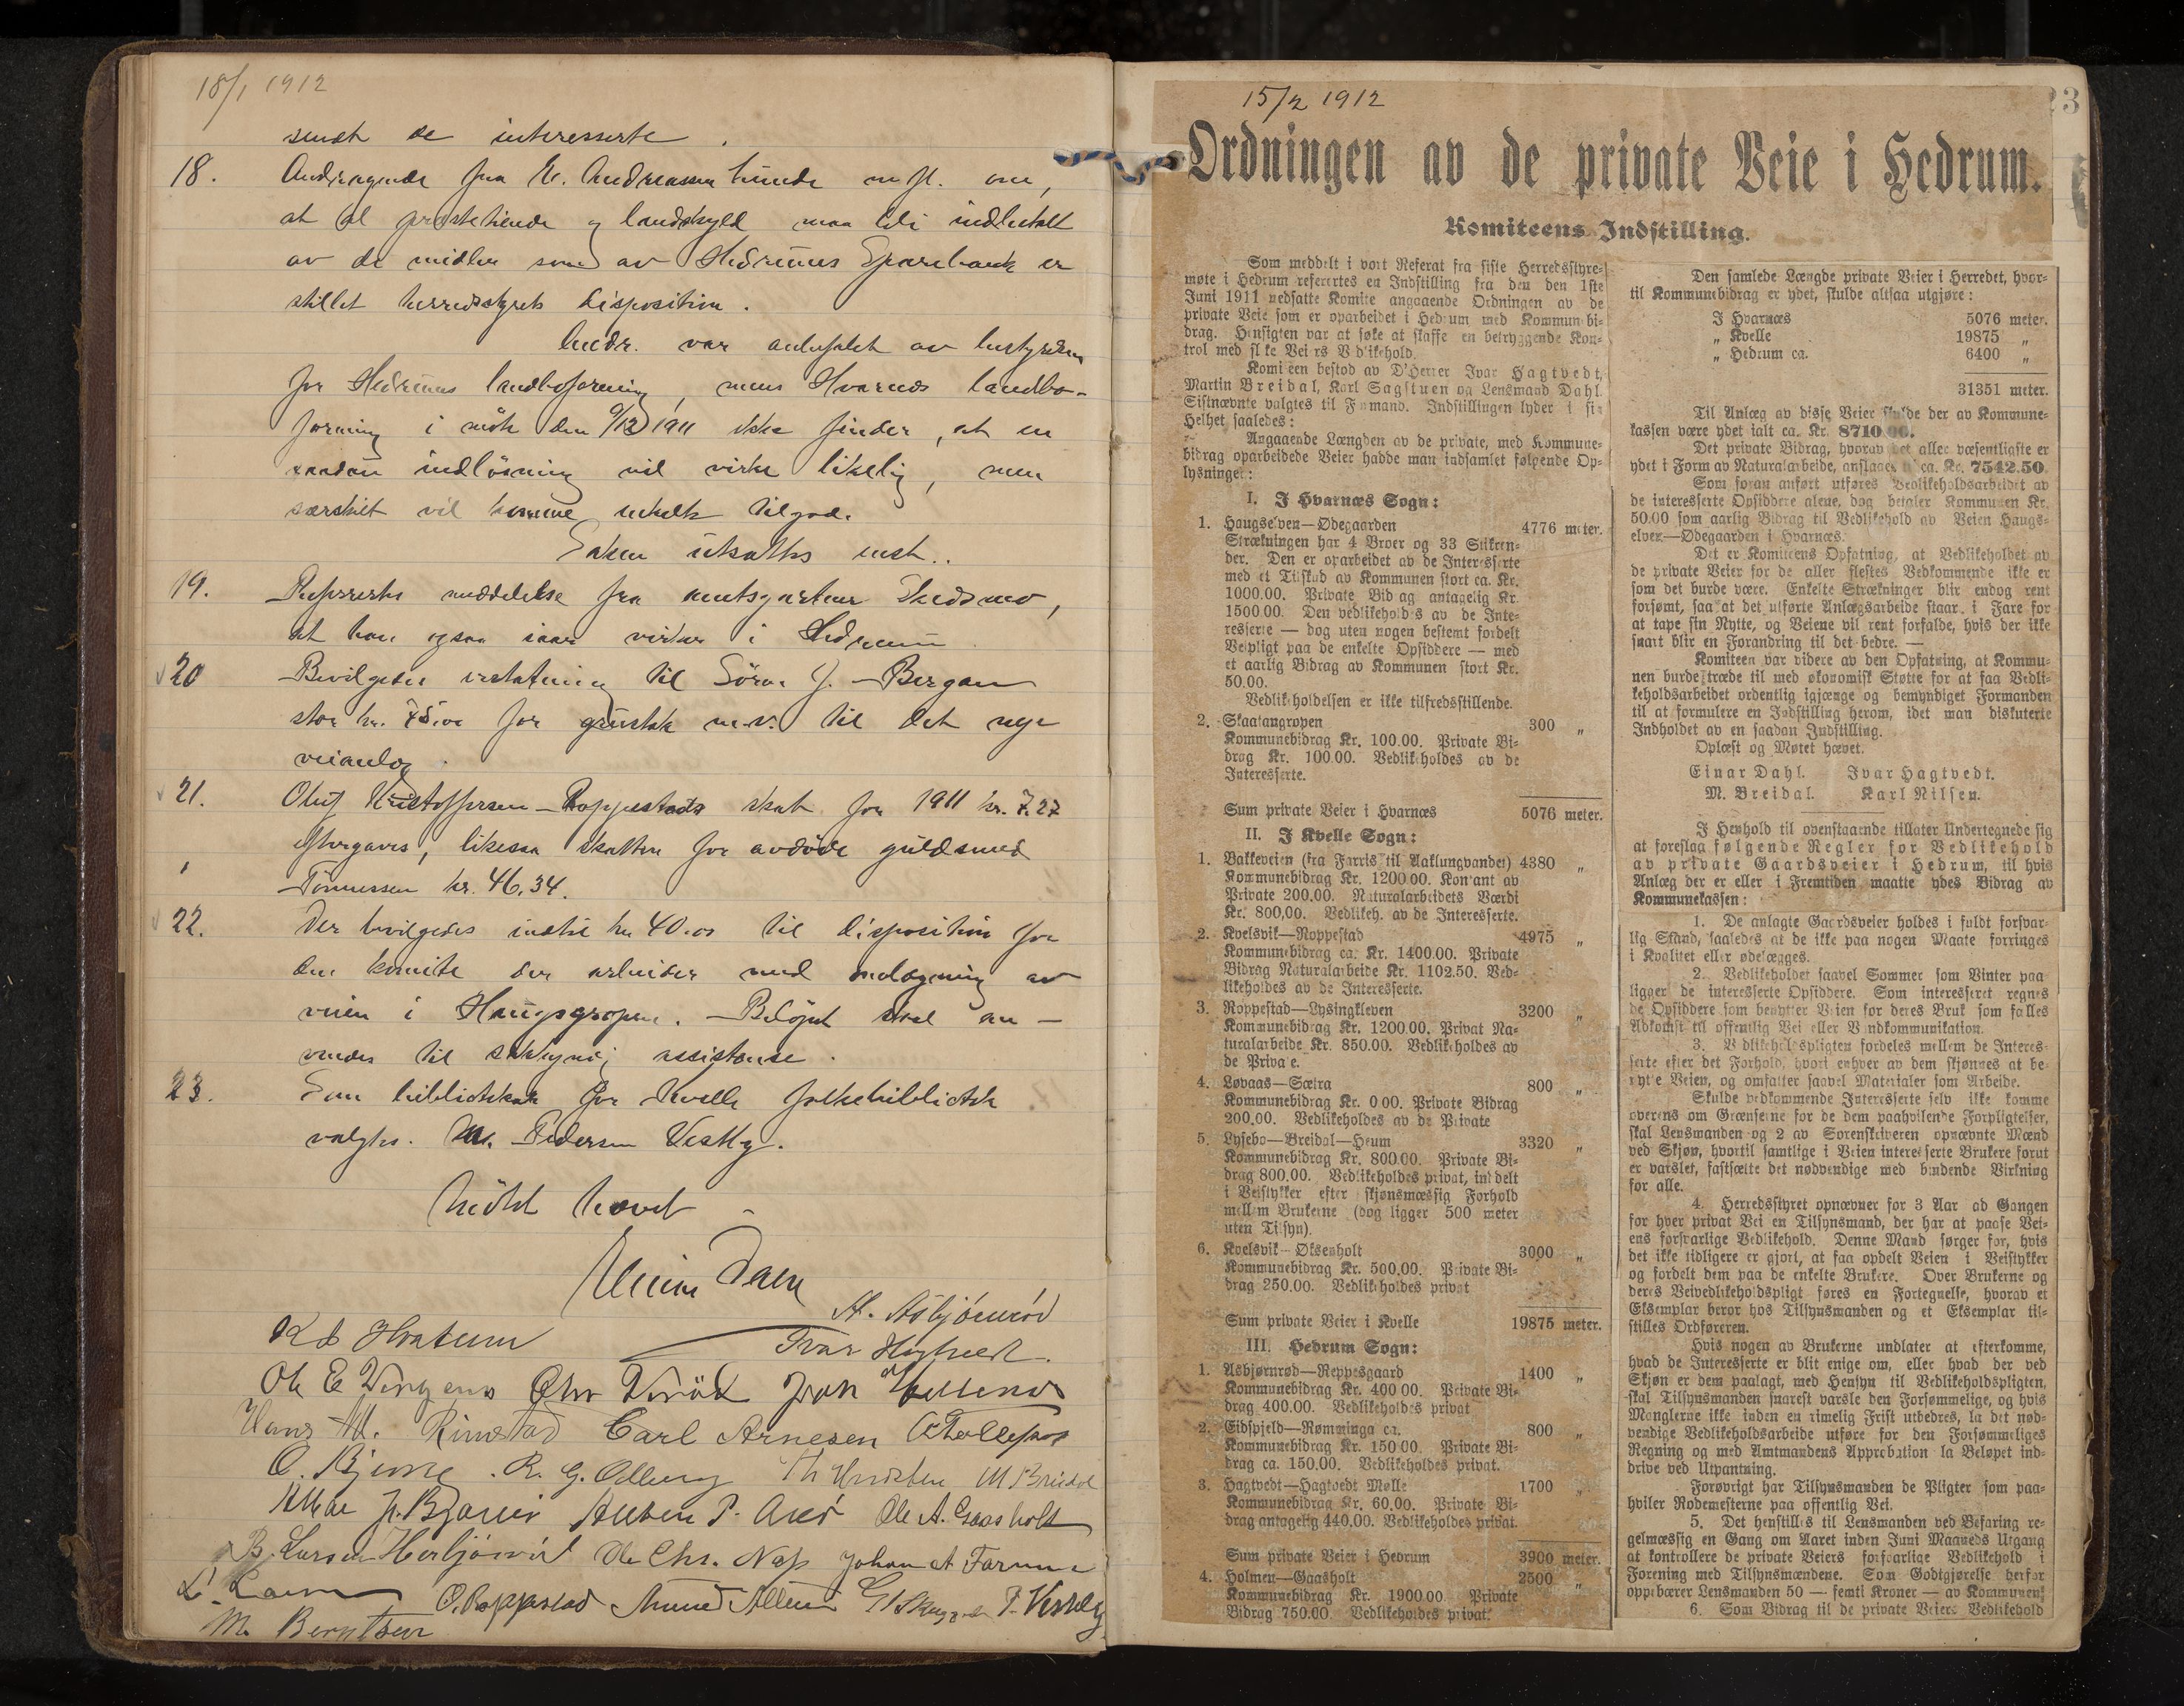 18/1 1912
sendt de interesserte.
18. Andragende fra   Andreassen   m. fl. om,
at al prestetiende og landskyld maa bli indbetalt
av de midler som av Hedrums Sparebank er
stillet herredsstyrets disposition.
Andr. var anbefalet av bestyrelsen
for Hedrums landboforening, mens Hvarnes landbo-
forening i møte den 9/12 1911 ikke finder, at en
saadan indløsning vil virke likelig, men
særskilt vil komme enkelte tilgode.
Saken utsattes
19. Refererte meddelelse fra amtsgartner Skedsmo,
at han ogsaa iaar virker i Hedrum
20 Bevilgedes erstatning til Sören J. Bergan
stor kr. 75.00 for grustak m.v. til det nye
veianlæg.
21. Oluf Kristoffersen Roppestads skat for 1911 kr. 7.27
eftergaves, likesaa skatten for avdöde guldsmed
Tönnessen kr. 46.34.
22. Der bevilgedes indtil kr. 40.00 til disposition for
den komite der arbeider med omlægning av
veien i Haugsgropen. Belöpet skal an-
vendes til sakkyndig assistanse.
23. Som bibliotekar for Kvelle folkebibliotek
valgtes M. Pedersen Vestby.
Mötet hævet
Einar Dahl
A. Asbjörnröd
K  Hvatum
Ivar Hagtvedt.
Ole E Vergens Chr Veröd
Hans M. Rimstad Carl Arnesen
O. Bjerge. R. G. Odberg Th Knudsen M Breidal
Ole A. Gaasholt
B. Larsen Herbjörnröd Ole Chr. Næs Johan A Farmen
O. Roppestad   P. Vestby
M. Berntsen
15/2 1912
23
Ordningen av de private Veie i Hedrum.
Komiteens Indstilling.
Som meddelt i vort Referat fra siste Herredsstyre-
møte i Hedrum referertes en Indstilling fra den den 1ste
Juni 1911 nedsatte Komite angaaende Ordningen av de
private Veie som er oparbeidet i Hedrum med Kommunebi-
drag. Hensigten var at søke at skaffe en betryggende Kon-
trol med slike Veiers Vedlikehold.
Komiteen bestod av D'Herrer Ivar Hagtvedt,
Martin Breidal, Karl Sagstuen og Lensmand Dahl.
Sistnævnte valgtes til Formand. Indstillingen lyder i sin
Helhet saaledes:
Angaaende Længden av de private, med Kommune-
bidrag oparbeidede Veier hadde man indsamlet følgende Op-
lysninger:
I. I Hvarnæs Sogn:
1. Haugselven—Ødegaarden 4776 meter.
Strækningen har 4 Broer og 33 Stikren-
der. Den er oparbeidet av de Interesserte
med et Tilskud av Kommunen stort ca. Kr.
1000.00. Private Bidrag antagelig Kr.
1500.00. Den vedlikeholdes av de Inte-
resserte — dog uten nogen bestemt fordelt
Veipligt paa de enkelte Opsiddere — med
et aarlig Bidrag av Kommunen stort Kr.
50.00.
Vedlikeholdelsen er ikke tilfredsstillende.
2. Skaatangropen 300 „
Kommunebidrag Kr. 100.00. Private Bi-
drag Kr. 100.00. Vedlikeholdes av de
Interesserte.
Sum private Veier i Hvarnæs 5076 meter.
II. I Kvelle Sogn:
1. Bakkeveien (fra Farris til Aaklungvandet) 4380 „
Kommunebidrag Kr. 1200.00. Kontant av
Private 200.00. Naturalarbeidets Værdi
Kr. 800,00. Vedlikeh. av de Interesserte.
2. Kvelsvik—Roppestad 4975 „
Kommunebidrag ca. Kr. 1400.00. Private
Bidrag Naturalarbeide Kr. 1102.50. Ved-
likeholdes av de Interesserte.
3. Roppestad—Lysingkleven 3200 „
Kommunebidrag Kr. 1200.00. Privat Na-
turalarbeide Kr. 850.00. Vedlikeholdes av
de Private.
4. Løvaas—Sætra 800 „
Kommunebidrag Kr. 0.00. Private Bidrag
200.00. Vedlikeholdes av de Private
5. Lysebo—Breidal—Heum 3320 „
Kommunebidrag Kr. 800.00. Private Bi-
drag 800.00. Vedlikeholdes privat, inddelt
i Veistykker efter skjønsmæssig Forhold
mellem Brukerne (dog ligger 500 meter
uten Tilsyn).
6. Kvelsvik—Øksenholt 3000 „
Kommunebidrag Kr. 500,00. Private Bi-
drag 250.00. Vedlikeholdes privat
Sum private Veier i Kvelle 19875 meter.
III. Hedrum Sogn:
1. Asbjørnrød—Reppesgaard 1400 „
Kommunebidrag Kr. 400 00. Private Bi-
drag 400.00. Vedlikeholdes privat
2. Eidsfjeld—Rømminga ca. 800 „
Kommunebidrag Kr. 150 00. Private Bi-
drag ca. 150.00. Vedlikeholdes privat.
3. Hagtvedt—Hagtvedt Mølle 1700 „
Kommunebidrag Kr. 60.00. Private Bi-
drag antagelig 440.00. Vedlikeholdes privat.
Sum private Veier i Hedrum 3900 meter.
4. Holmen—Gaasholt 2500 „
Kommunebidrag Kr. 1900.00 Private
Bidrag 750.00. Vedlikeholdes privat.
Den samlede Længde private Veier i Herredet, hvor-
til Kommunebidrag er ydet, skulde altsaa utgjøre:
I Hvarnæs 5076 meter.
„ Kvelle 19875 „
„ Hedrum ca. 6400 „
31351 meter.
Til Anlæg av disse Veier skulde der av Kommune-
kassen være ydet ialt ca. Kr. 8710.00.
Det private Bidrag, hvorav det aller væsentligste er
ydet i Form av Naturalarbeide, anslaaes til ca. Kr. 7542.50.
Som foran anført utføres Vedlikeholdsarbeidet av
de interesserte Opsiddere alene, dog betaler Kommunen Kr.
50.00 som aarlig Bidrag til Vedlikehold av Veien Haugs-
elven—Ødegaarden i Hvarnæs.
Det er Komiteens Opfatning, at Vedlikeholdet av
de private Veier for de aller flestes Vedkommende ikke er
som det burde være. Enkelte Strækninger blir endog rent
forsømt, saa at det utførte Anlægsarbeide staar i Fare for
at tape sin Nytte, og Veiene vil rent forfalde, hvis der ikke
snart blir en Forandring til det bedre. —
Komiteen var videre av den Opfatning, at Kommu-
nen burde træde til med økonomisk Støtte for at faa Vedli-
keholdsarbeidet ordentlig igjænge og bemyndiget Formanden
til at formulere en Indstilling herom, idet man diskuterte
Indholdet av en saadan Indstilling.
Oplæst og Møtet hævet.
Einar Dahl. Ivar Hagtvedt.
M. Breidal. Karl Nilsen.
I Henhold til ovenstaaende tillater Undertegnede sig
at foreslaa følgende Regler for Vedlikehold
av private Gaardsveier i Hedrum, til hvis
Anlæg der er eller i Fremtiden maatte ydes Bidrag av
Kommunekassen:
1. De anlagte Gaardsveier holdes i fuldt forsvar-
lig Stand, saaledes at de ikke paa nogen Maate forringes
i Kvalitet eller ødelægges.
2. Vedlikeholdet saavel Sommer som Vinter paa
ligger de interesserte Opsiddere. Som interesseret regnes
de Opsiddere som benytter Veien for deres Bruk som fælles
Adkomst til offentlig Vei eller Vandkommunikation.
3. Vedlikeholdspligten fordeles mellem de Interes-
serte efter det Forhold, hvori enhver av dem skjønnes at be-
nytte Veien, og omfatter saavel Materialer som Arbeide.
Skulde vedkommende Interesserte selv ikke komme
overens om Grænserne for de dem paahvilende Forpligtelser,
skal Lensmanden og 2 av Sorenskriveren opnævnte Mænd
ved Skjøn, hvortil samtlige i Veien interesserte Brukere forut
er varslet, fastsætte det nødvendige med bindende Virkning
for alle.
4. Herredsstyret opnævner for 3 Aar ad Gangen
for hver privat Vei en Tilsynsmand, der har at paase Vei-
ens forsvarlige Vedlikehold. Denne Mand sørger for, hvis
det ikke tidligere er gjort, at faa opdelt Veien i Veistykker
og fordelt dem paa de enkelte Brukere. Over Brukerne og
deres Veivedlikeholdspligt føres en Fortegnelse, hvorav et
Eksemplar beror hos Tilsynsmanden og et Eksemplar til-
stilles Ordføreren.
Hvis nogen av Brukerne undlater at efterkomme,
hvad de Interesserte er blit enige om, eller hvad der ved
Skjøn er dem paalagt, med Hensyn til Vedlikeholdspligten,
skal Tilsynsmanden snarest varsle den Forsømmelige, og hvis
Manglerne ikke inden en rimelig Frist utbedres, la det nød-
vendige Vedlikeholdsarbeide utføre for den Forsømmeliges
Regning og med Amtmandens Approbation la Beløpet ind-
drive ved Utpantning.
Forøvrigt har Tilsynsmanden de Pligter som paa-
hviler Rodemesterne paa offentlig Vei.
5. Det henstilles til Lensmanden ved Befaring re-
gelmæssig en Gang om Aaret inden Juni Maaneds Utgang
at kontrollere de private Veiers forsvarlige Vedlikehold i
Forening med Tilsynsmændene. Som Godtgjørelse herfor
oppebærer Lensmanden 50 — femti Kroner — av Kommunen.
6. Som Bidrag til de private Veiers Vedlikehold